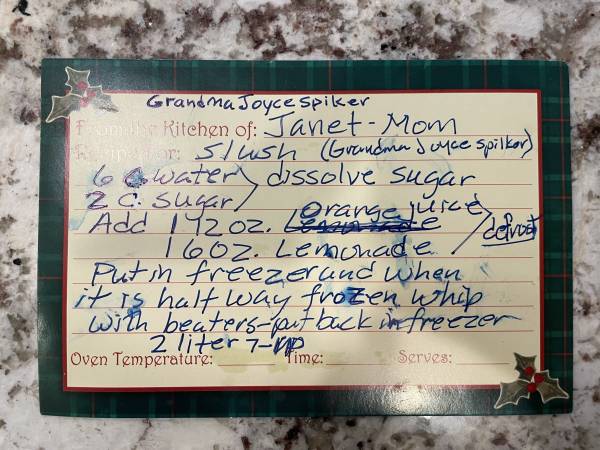 Grandma Joyce Spilker
From the Kitchen of: Janet - Mom
Recipe for: Slush (Grandma Joyce Spilker)
6 C water > dissolve sugar
2 C. sugar
Add 1 12 oz. Orange juice > defrost
1 6 oz. Lemonade
Put in freezer and when
it is half way frozen whip
with beaters - put back in freezer
2 liter 7-up
Oven Temperature: Time: Serves: